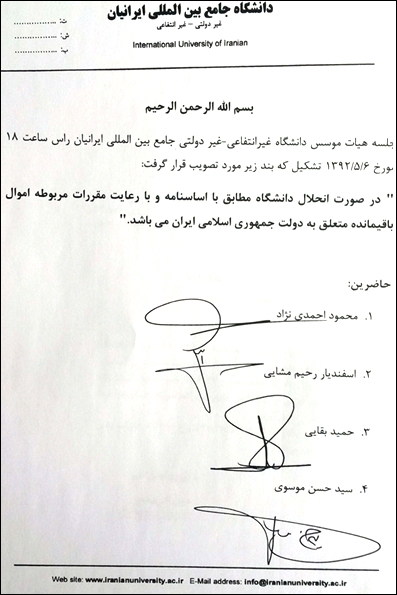 دانشگاه جامع بین المللی ایرانیان
غیر دولتی - غیر انتفاعی
International University of Iranian
ت: ................
ش: ................
پ: ................
بسم الله الرحمن الرحیم
جلسه هیات موسس دانشگاه غیرانتفاعی-غیر دولتی جامع بین المللی ایرانیان راس ساعت ۱۸
مورخ ۱۳۹۲/۵/۶ تشکیل که بند زیر مورد تصویب قرار گرفت:
" در صورت انحلال دانشگاه مطابق با اساسنامه و با رعایت مقررات مربوطه اموال
باقیمانده متعلق به دولت جمهوری اسلامی ایران می باشد."
حاضرین:
۱. محمود احمدی نژاد
۲. اسفندیار رحیم مشایی
۳. حمید بقایی
۴. سید حسن موسوی
Web site: www.iranianuniversity.ac.ir E-Mail address: info@iranianuniversity.ac.ir